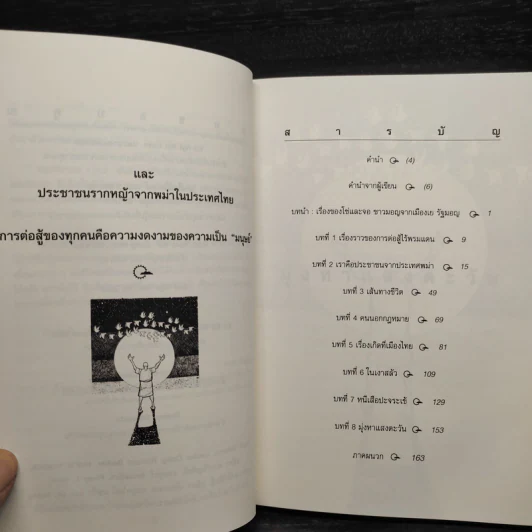 และ
ประชาชนรากหญ้าจากพม่าในประเทศไทย
การต่อสู้ของทุกคนคือความงดงามของความเป็น "มนุษย์"
ส า ร บั ญ
คำนำ (4)
คำนำจากผู้เขียน (6)
บทนำ : เรื่องของไข่และจอ ชาวมอญจากเมืองเย รัฐมอญ 1
บทที่ 1 เรื่องราวของการต่อสู้ไร้พรมแดน 9
บทที่ 2 เราคือประชาชนจากประเทศพม่า 15
บทที่ 3 เส้นทางชีวิต 49
บทที่ 4 คนนอกกฎหมาย 69
บทที่ 5 เรื่องเกิดที่เมืองไทย 81
บทที่ 6 ในเงาสลัว 109
บทที่ 7 หนีเสือปะจระเข้ 129
บทที่ 8 มุ่งหาแสงตะวัน 153
ภาคผนวก 163